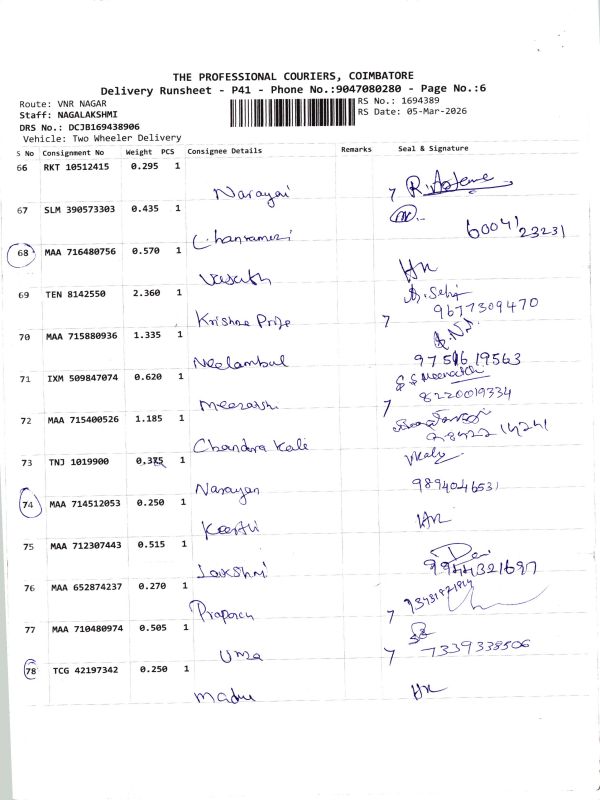 THE PROFESSIONAL COURIERS, COIMBATORE
Delivery Runsheet - P41 - Phone No.:9047080280 - Page No.:6
Route: VNR NAGAR
RS No.: 1694389
Staff: NAGALAKSHMI
RS Date: 05-Mar-2026
DRS No.: DCJB169438906
Vehicle: Two Wheeler Delivery
S No Consignment No Weight PCS Consignee Details Remarks Seal & Signature
66 RKT 10512415 0.295 1
Narayai
67 SLM 390573303 0.435 1
60041 23231
68 MAA 716480756 0.570 1
Vasath
69 TEN 8142550 2.360 1
9677309470
Krishna
70 MAA 715880936 1.335 1
Neelambal
71 IXM 509847074 0.620 1
8220019334
72 MAA 715400526 1.185 1
Chandra Kale
73 TNJ 1019900 0.375 1
9894046531
Narayan
74 MAA 714512053 0.250 1
Keerthi
75 MAA 712307443 0.515 1
Lakshmi
9944321697
76 MAA 652874237 0.270 1
77 MAA 710480974 0.505 1
7339338506
Uma
78 TCG 42197342 0.250 1
Madhu